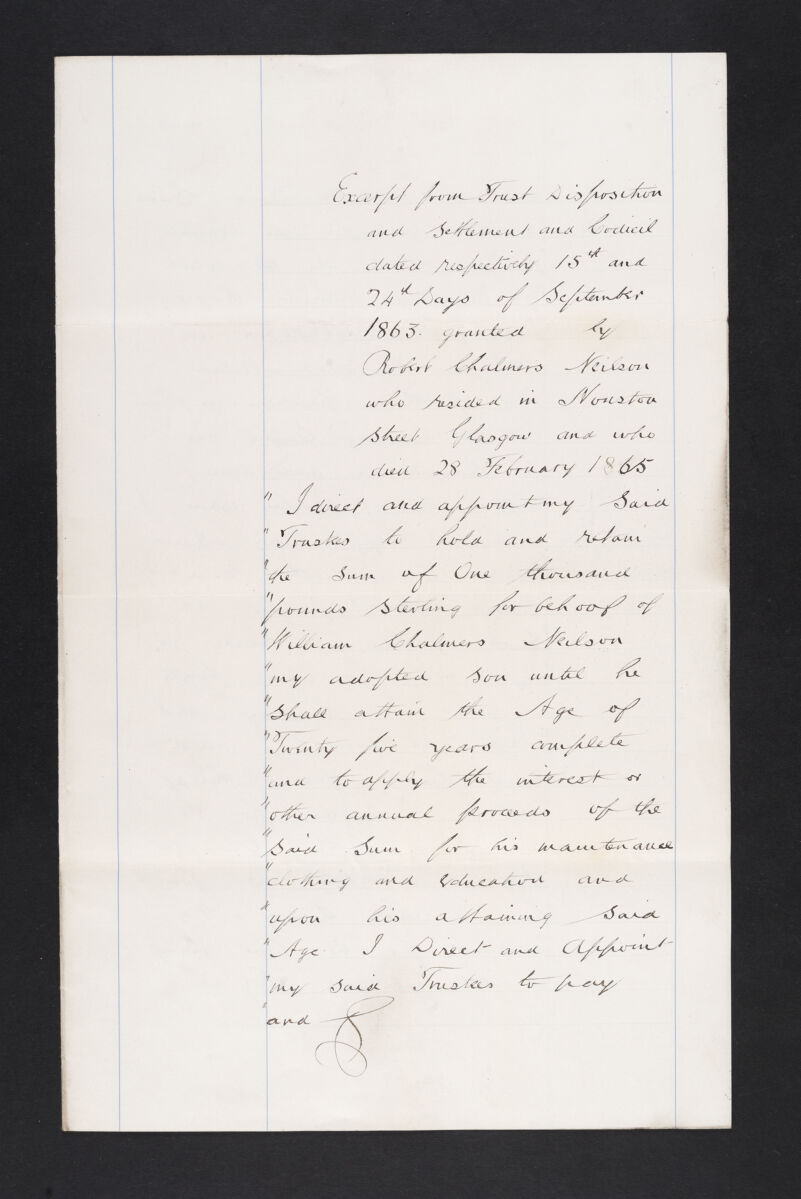 Excerpt from Trust Disposition
and Settlement and Codicil
dated respectively 15th and
24th Days of September
1863. granted by
Robert Chalmers Neilson
who resided in Houston
Street Glasgow and who
died 28 February 1865
" I direct and appoint my said
" Trustees to hold and retain
" the sum of One thousand
" pounds Sterling for behoof of
" William Chalmers Neilson
" my adopted son until he
" shall attain the Age of
" Twenty five years complete
" and to apply the interest or
" other annual proceeds of the
" said Sum for his maintenance
" clothing and education and
" upon his attaining said
" Age I Direct and Appoint
" my said Trustees to pay
" and